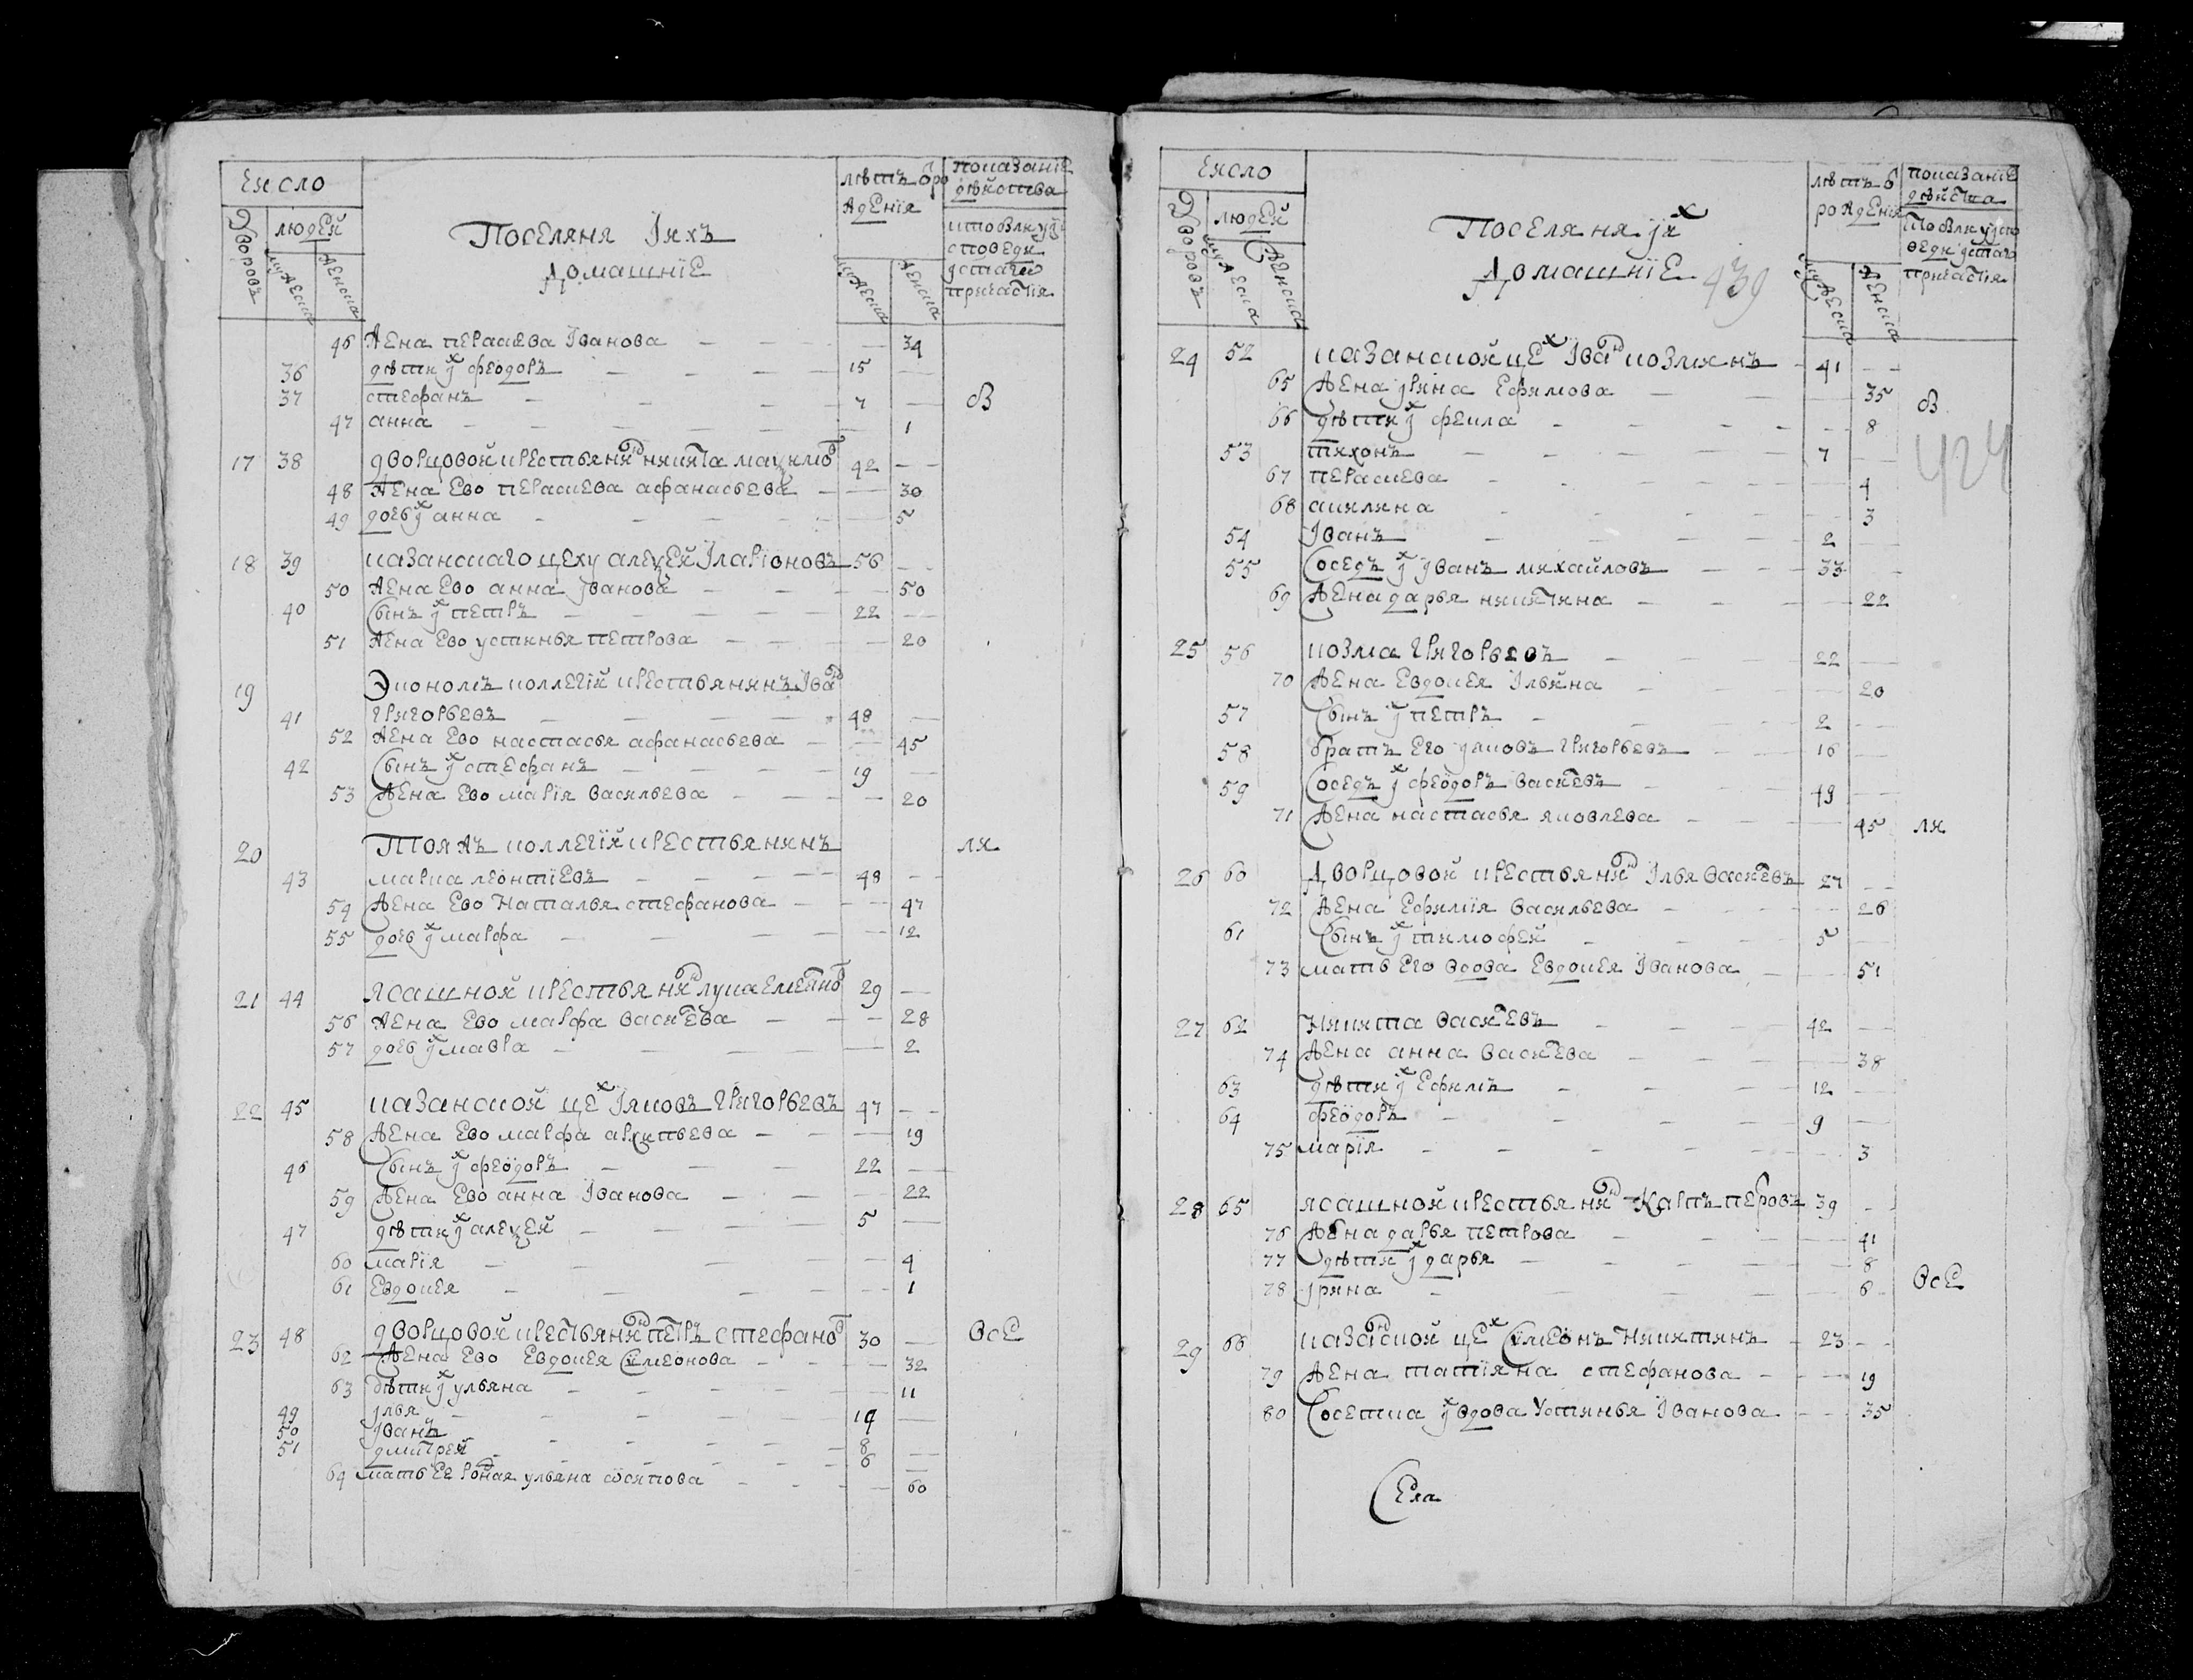 Число
Дворовъ
людей
мужеска
женска
Поселяня Iихъ
домашнïе
лѣтъ ѿро
жденïя
мужеска
женска
показанïе
дѣйства
кто былъ у и
споведи
у стаго
причастïя
46 жена перасцева Iванова — 34
36 дѣти их феодоръ — 15
37 стефанъ — 7 —
47 анна — 1
17 38 дворцовой крестьянин никита маѯимов 42 —
48 жена ево перасцева афанасьева — 30
49 дочь их анна — 5
18 39 казанскаго цеху алеѯей Iларïоновъ 56 —
50 жена ево анна Iванова — 50
40 сынъ их петръ — 22 —
51 жена ево устинья петрова — 20
19 Экономъ коллегïи крестьянинъ Iван
41 григорьевъ — 48 —
52 жена ево настасья афанасьева — 45
42 сынъ их стефанъ — 19 —
53 жена ево марïя васильева — 20
20 тояжъ коллегïи крестьянинъ
43 марка леонтïевъ — 48 —
54 жена ево наталья стефанова — 47
55 дочь их марфа — 12
21 44 ясашной крестьянин лука 29 —
56 жена ево марфа васи॑ева — 28
57 дочь их мавра — 2
22 45 казанской цех Iяковъ григорьевъ 47 —
58 жена ево марфа архипьева — 19
46 сынъ их феодоръ — 22 —
59 жена ево анна Iванова — 22
47 дѣти их алеѯей — 5 —
60 марïя — 4
61 евдокея — 1
23 48 дворцовой крестьянин петръ стефанов 30 — все
62 жена ево евдокея сïмеонова — 32
63 дѣти их ульяна — 11
49 Iлья — 14
50 Iванъ — 8 —
51 дмитрей — 6 —
64 мать ея родная ульяна — 60
Число
Дворовъ
людей
мужеска
женска
Поселяня их
домашнïе
439
лѣтъ ѿ
рожденïя
мужеска
женска
показанïе
дѣйства
кто былъ у испо
веди у стаго
причастïя
24 52 казанской цех Iван козминъ — 41 —
65 жена Iрина ефимова — 35
66 дѣти их фекла — 8
424
53 тихонъ — 7 —
67 перасцева — 4
68 акилина — 3
54 Iванъ — 2 —
55 соседъ их Iванъ михайловъ — 33 —
69 жена дарья никитина — 22
25 56 козма григорьевъ — 22 —
70 жена евдокея Iльина — 20
57 сынъ их петръ — 2 —
58 братъ его Iяковъ григорьевъ — 16 —
59 соседъ их феодоръ васи॑евъ — 49 —
71 жена настасья яковлева — 45
26 60 дворцовой крестьянин Iлья васи॑евъ 27 —
72 жена ефимïя васильева — 26
61 сынъ их тимофей — 5 —
73 мать его вдова евдокея Iванова — 51
27 62 никита васи॑евъ — 42 —
74 жена анна васи॑ева — 38
63 дѣти их ефимъ — 12 —
64 феодоръ — 9 —
75 марïя — 3
28 65 ясашной крестьянин карпъ петровъ 39 —
76 жена дарья петрова — 41
77 дѣти их дарья — 8
78 Iрина — 6 все
29 66 казанской цех сïмеонъ никитинъ — 23 —
79 жена татïяна стефанова — 19
80 соседка их вдова устинья Iванова — 35
Села